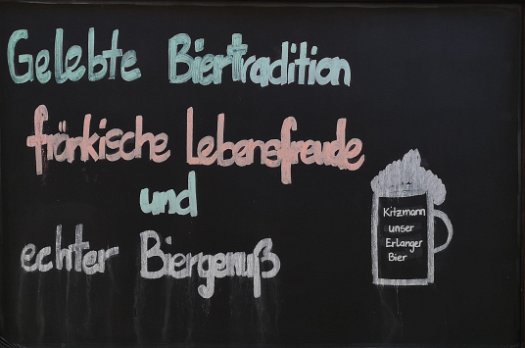 Gelebte Biertradition
fränkische Lebensfreude
und
echter Biergenuß
Kitzmann
unser
Erlanger
Bier